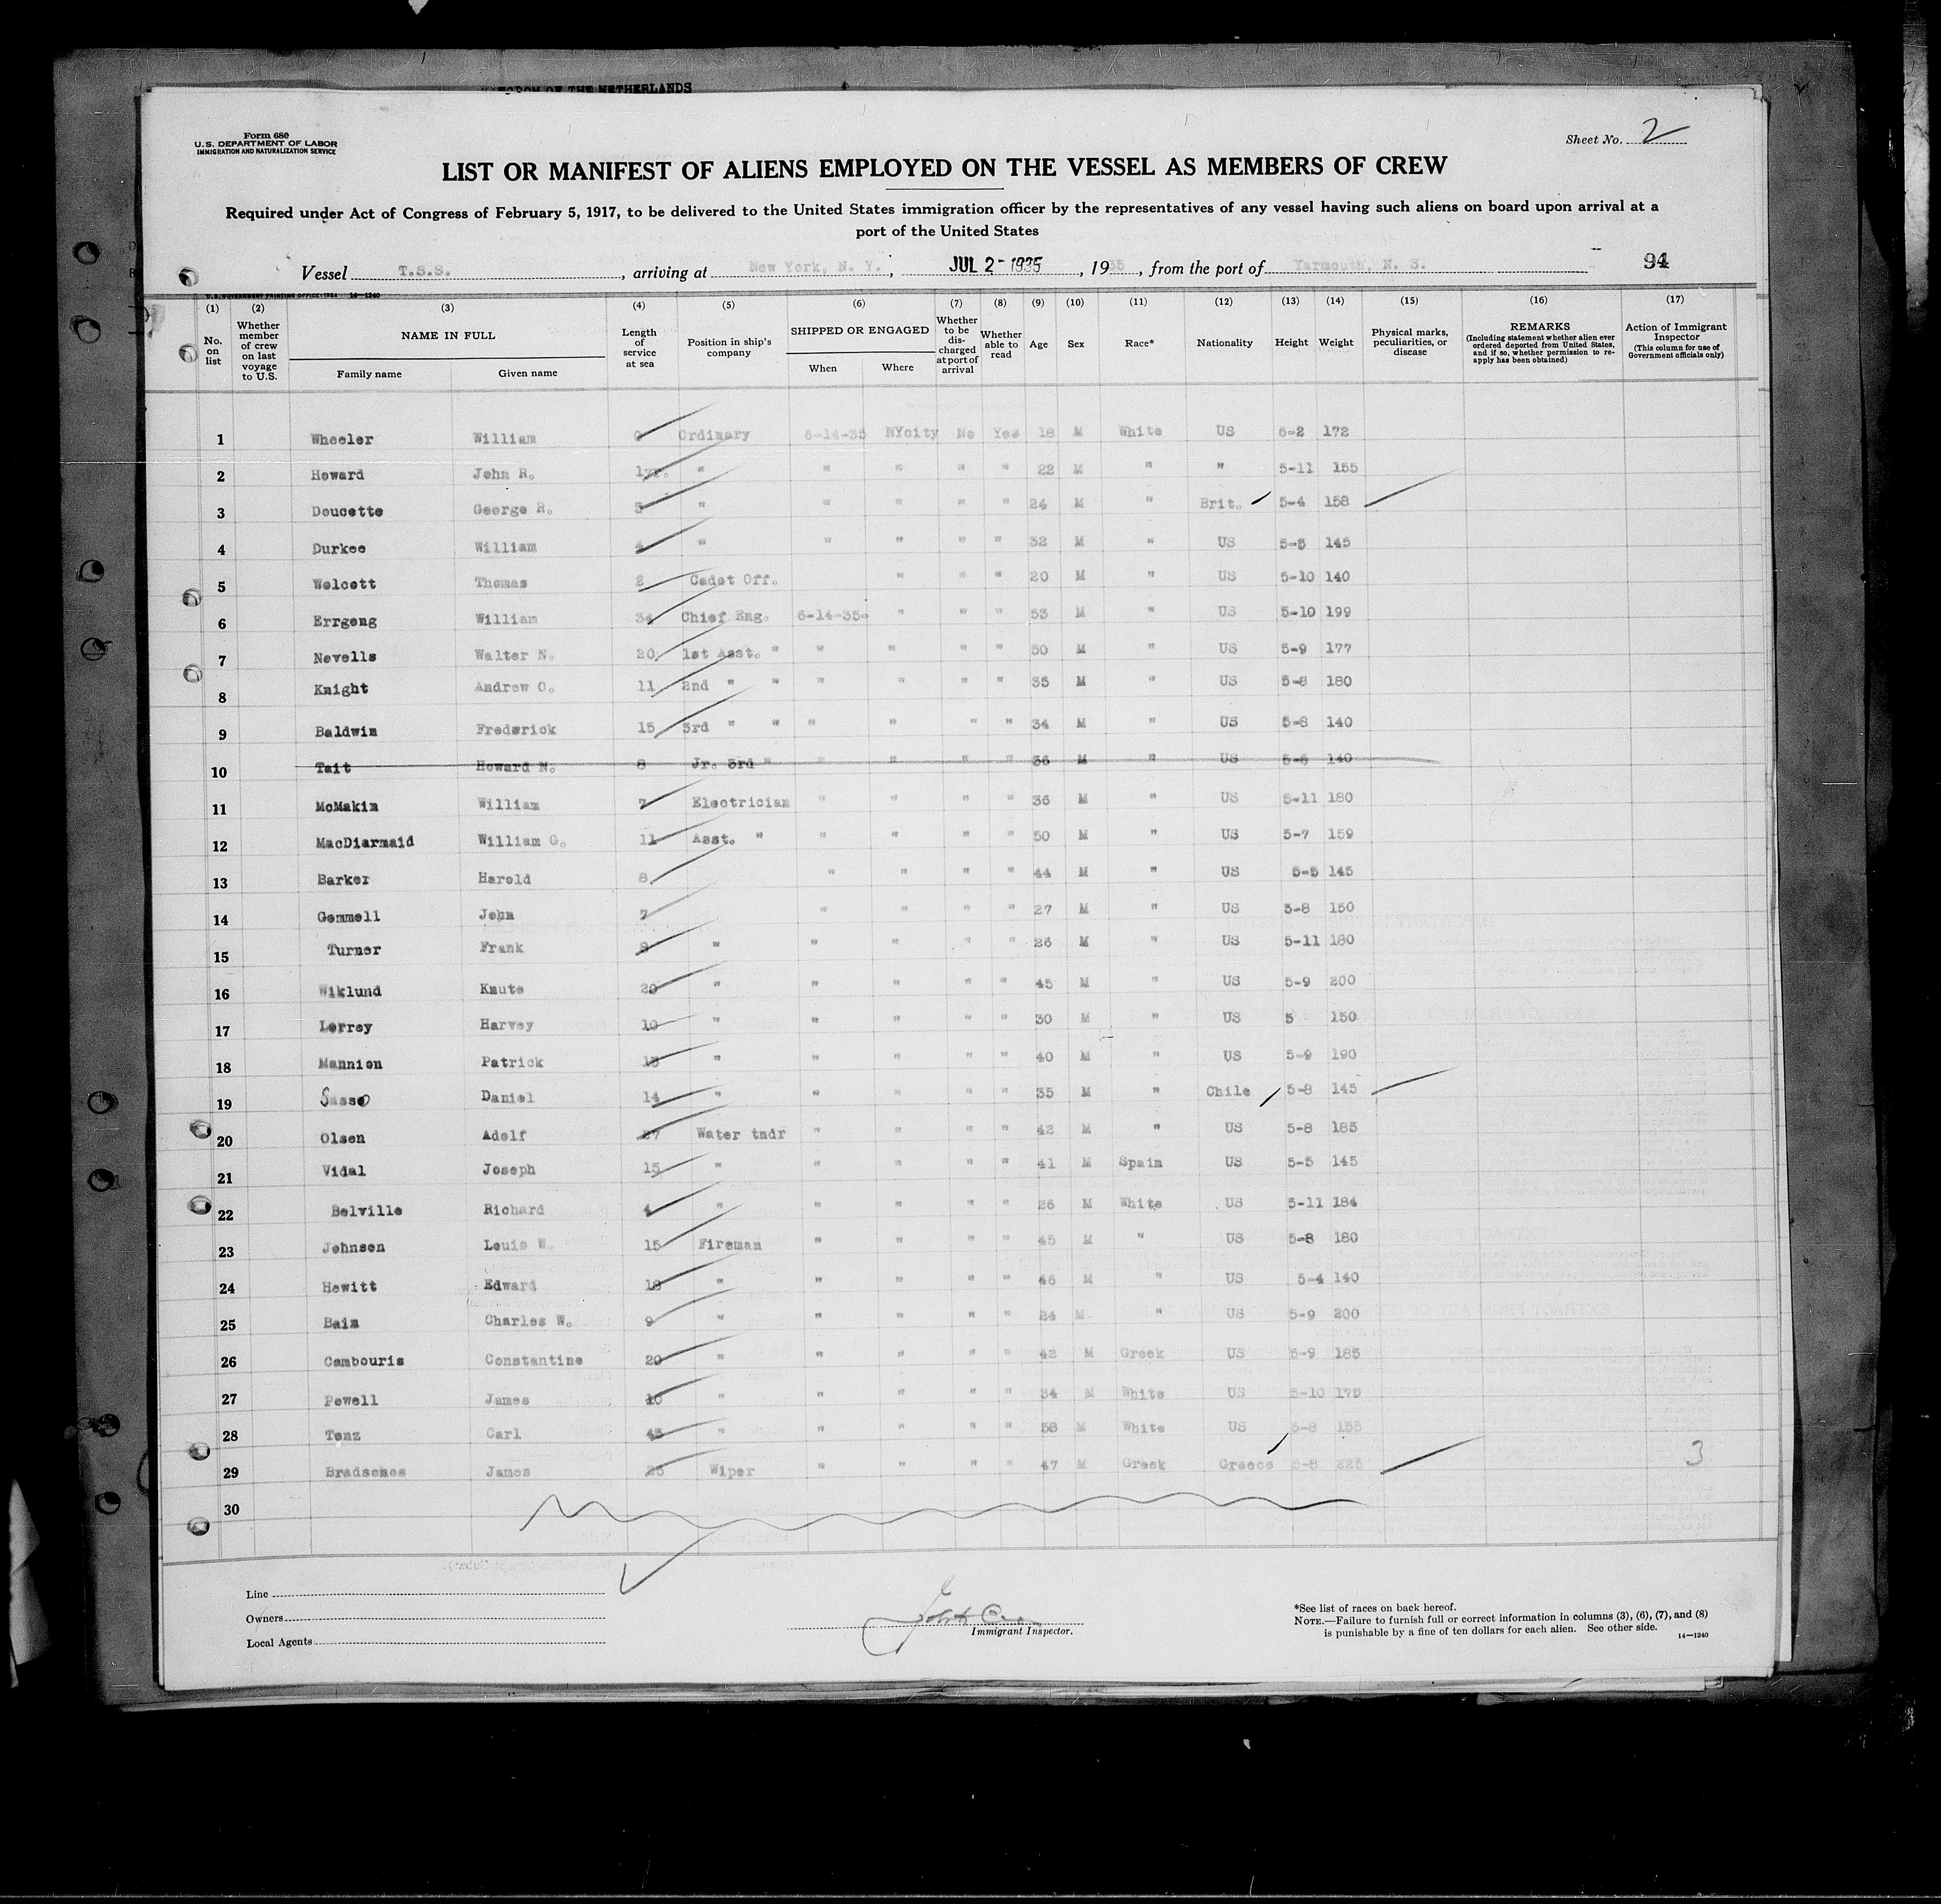 KINGDOM OF THE NETHERLANDS
Form 680
U.S. DEPARTMENT OF LABOR
IMMIGRATION AND NATURALIZATION SERVICE
Sheet No. 2
LIST OR MANIFEST OF ALIENS EMPLOYED ON THE VESSEL AS MEMBERS OF CREW
Required under Act of Congress of February 5, 1917, to be delivered to the United States immigration officer by the representatives of any vessel having such aliens on board upon arrival at a
port of the United States
Vessel T.S.S. , arriving at New York, N. Y. , JUL 2- 1935 , 1935 , from the port of Yarmouth, N. S. 94
U.S. GOVERNMENT PRINTING OFFICE: 1934 14—1240
(1) (2) (3) (4) (5) (6) (7) (8) (9) (10) (11) (12) (13) (14) (15) (16) (17)
No. on list Whether member of crew on last voyage to U.S. NAME IN FULL Family name Given name Length of service at sea Position in ship's company SHIPPED OR ENGAGED When Where Whether to be discharged at port of arrival Whether able to read Age Sex Race* Nationality Height Weight Physical marks, peculiarities, or disease REMARKS (Including statement whether alien ever ordered deported from United States, and if so, whether permission to reapply has been obtained) Action of Immigrant Inspector (This column for use of Government officials only)
1 Wheeler William Ordinary 6-14-35 NYcity No Yes 18 M White US 6-2 172
2 Howard John R. 1yr. " " " " " 22 M " " 5-11 155
3 Doucette George R. " " " " " 24 M " Brit. 5-4 158
4 Durkee William 4 " " " " " 32 M " US 5-5 145
5 Wolcott Thomas 2 Cadet Off. " " " 20 M " US 5-10 140
6 Errgong William 34 Chief Eng. 6-14-35 " " " 53 M " US 5-10 199
7 Nevells Walter N. 20 1st Asst. " " " " " 50 M " US 5-9 177
8 Knight Andrew O. 11 2nd " " " " " " 35 M " US 5-8 180
9 Baldwin Frederick 15 3rd " " " " " " 34 M " US 5-8 140
10 Tait Howard N. 8 Jr. 3rd " " " " " 36 M " US 5-6 140
11 McMakin William 7 Electrician " " " " 36 M " US 5-11 180
12 MacDiarmaid William G. 11 Asst. " " " " " 50 M " US 5-7 159
13 Barker Harold 8 " " " " 44 M " US 5-5 145
14 Gemmell John 7 " " " " 27 M " US 5-8 150
15 Turner Frank 8 " " " " " 26 M " US 5-11 180
16 Wiklund Knute 20 " " " " " 45 M " US 5-9 200
17 Lorrey Harvey 10 " " " " " 30 M " US 5 150
18 Mannion Patrick 15 " " " " " 40 M " US 5-9 190
19 Sasso Daniel 14 " " " " " 35 M " Chile 5-8 145
20 Olsen Adolf 27 Water tndr " " " " 42 M " US 5-8 185
21 Vidal Joseph 15 " " " " " 41 M Spain US 5-5 145
22 Belville Richard 4 " " " " " 26 M White US 5-11 184
23 Johnson Louis W. 15 Fireman " " " " 45 M " US 5-8 180
24 Hewitt Edward 18 " " " " " 46 M " US 5-4 140
25 Bain Charles W. 9 " " " " " 24 M " US 5-9 200
26 Cambouris Constantine 20 " " " " " 42 M Greek US 5-9 185
27 Powell James 10 " " " " " 34 M White US 5-10 175
28 Tonz Carl 45 " " " " " 58 M White US 5-8 155
29 Bradsohos James 25 Wiper " " " " 47 M Greek Greece 5-8 225 3
30
Line
Owners
Local Agents
Immigrant Inspector.
*See list of races on back hereof.
NOTE.—Failure to furnish full or correct information in columns (3), (6), (7), and (8)
is punishable by a fine of ten dollars for each alien. See other side.
14—1240